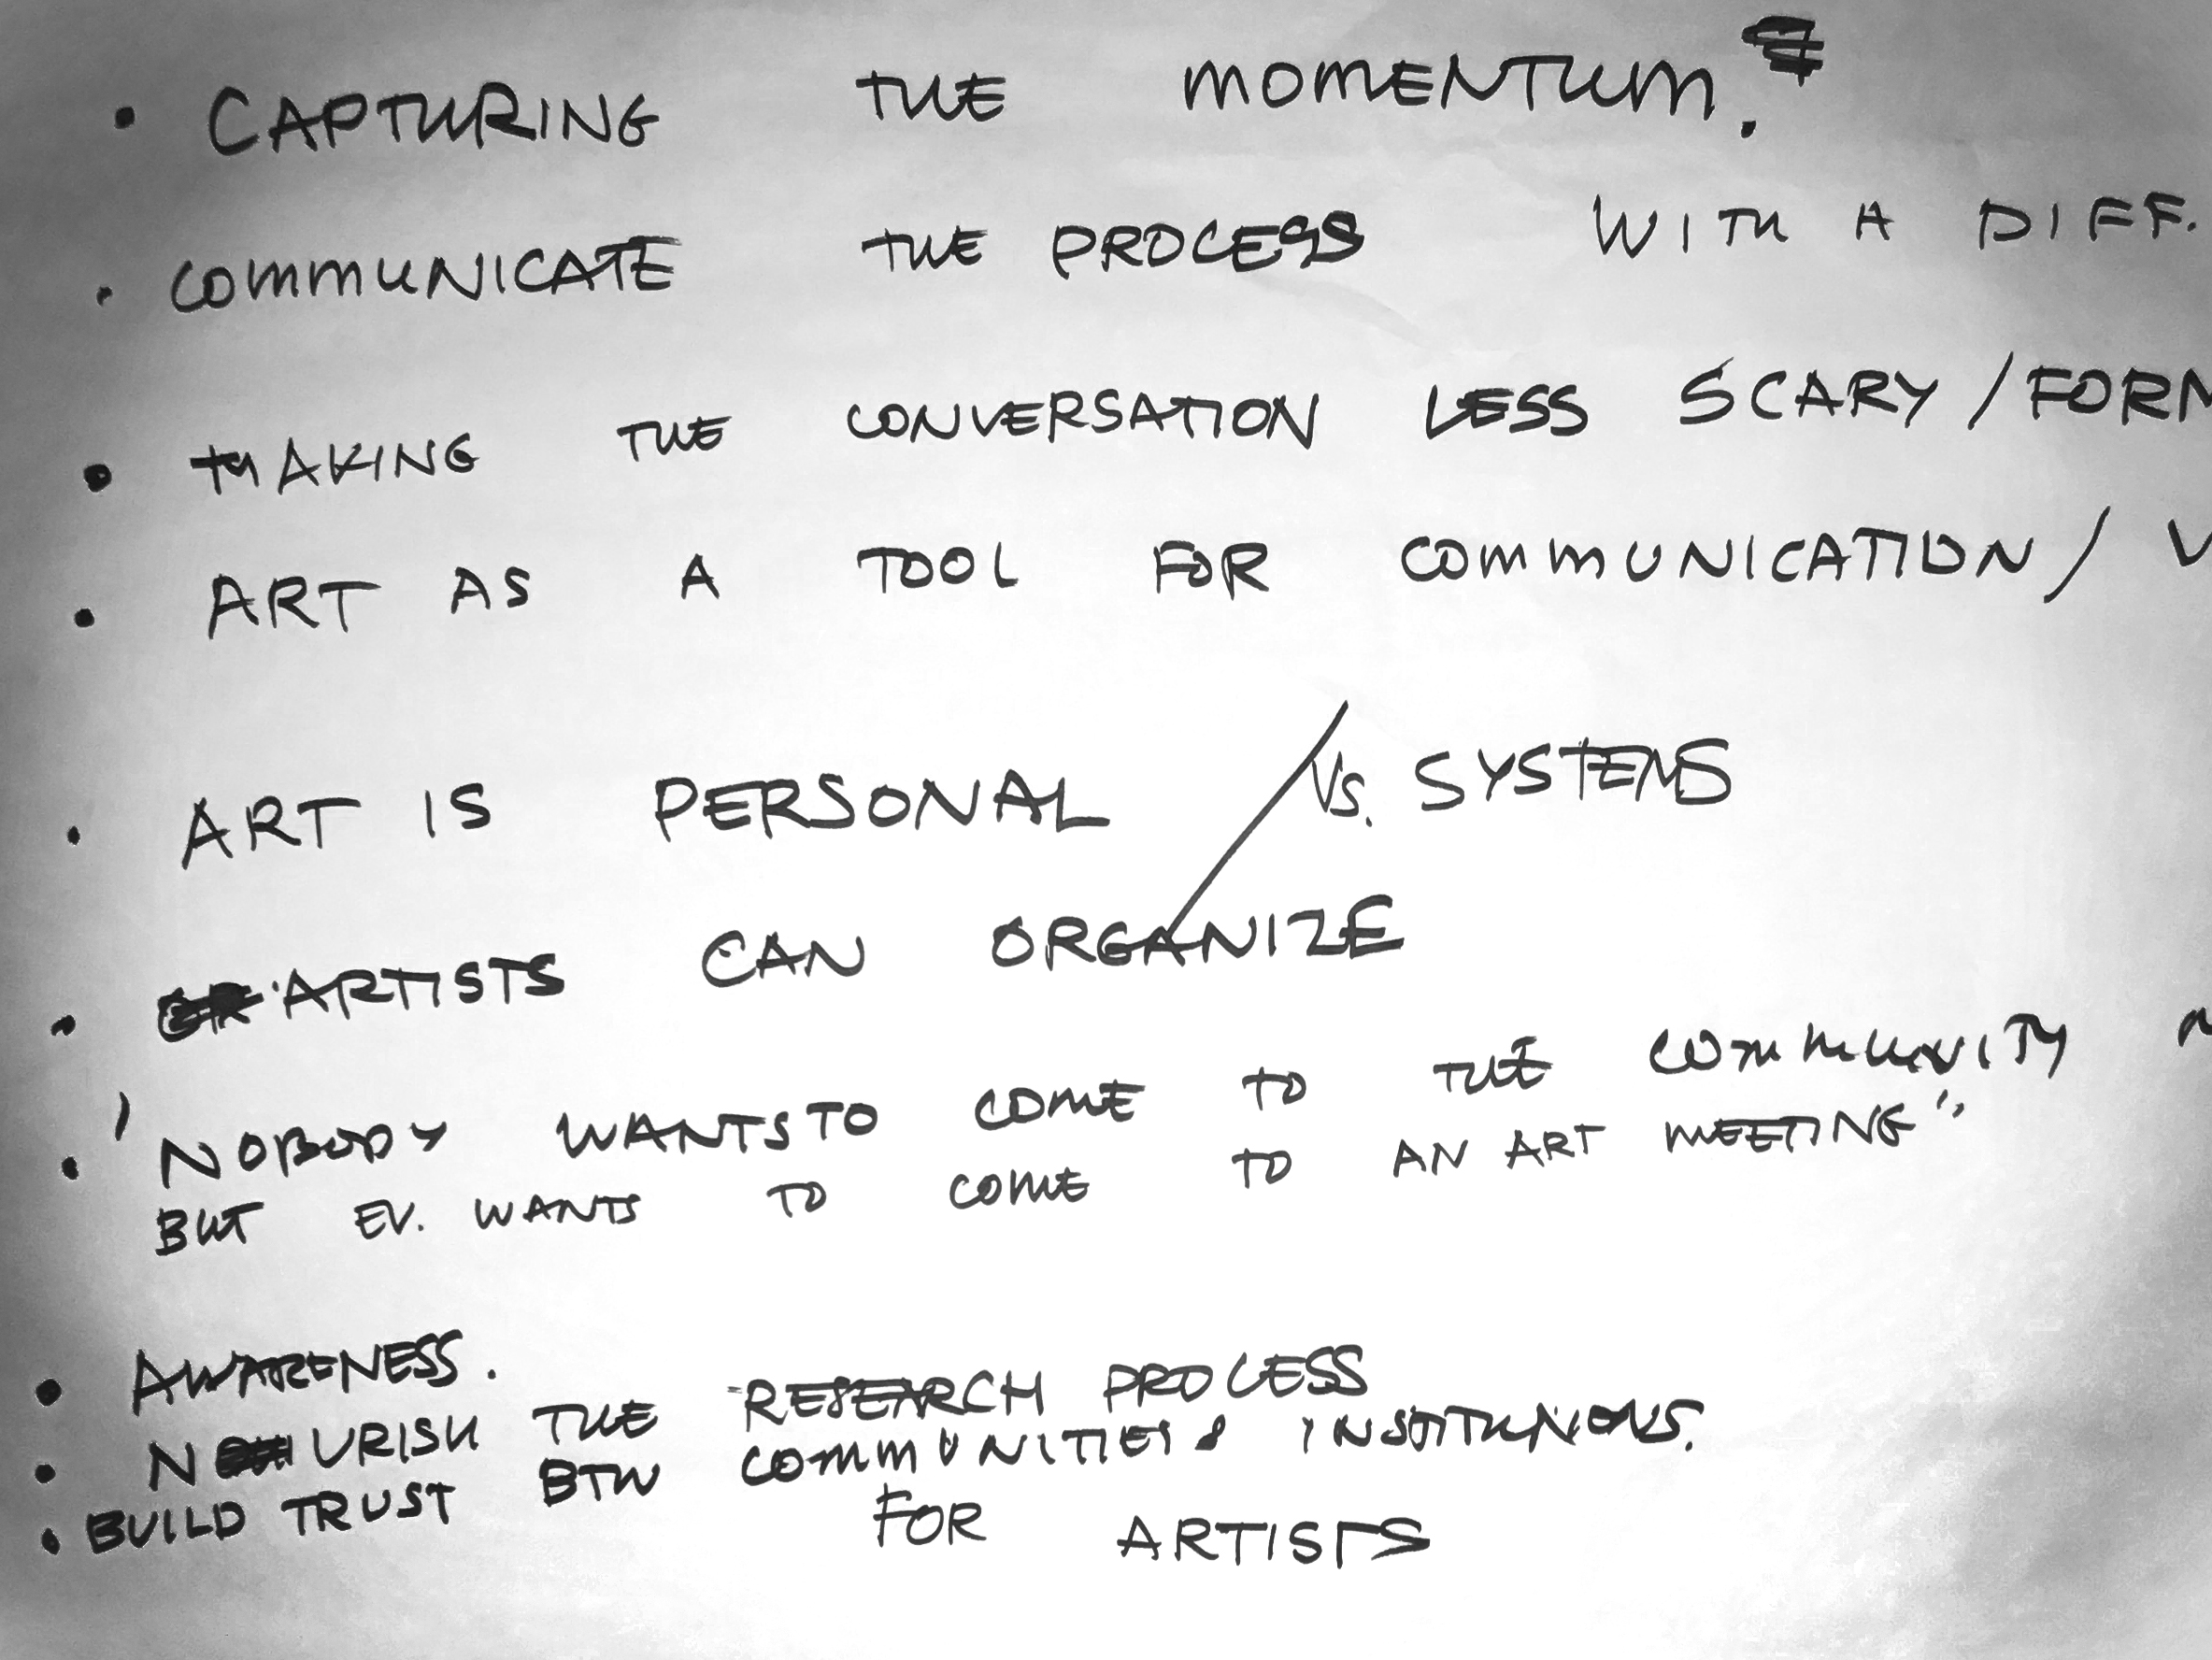 • CAPTURING THE MOMENTUM.
• COMMUNICATE THE PROCESS WITH A DIFF.
• MAKING THE CONVERSATION LESS SCARY / FORM
• ART AS A TOOL FOR COMMUNICATION / V
• ART IS PERSONAL / VS. SYSTEMS
• ARTISTS CAN ORGANIZE
• ' NOBODY WANTS TO COME TO THE COMMUNITY
BUT EV. WANTS TO COME TO AN ART MEETING"
• AWARENESS.
• NOURISH THE RESEARCH PROCESS
• BUILD TRUST BTW COMMUNITIES & INSTITUTIONS.
FOR ARTISTS